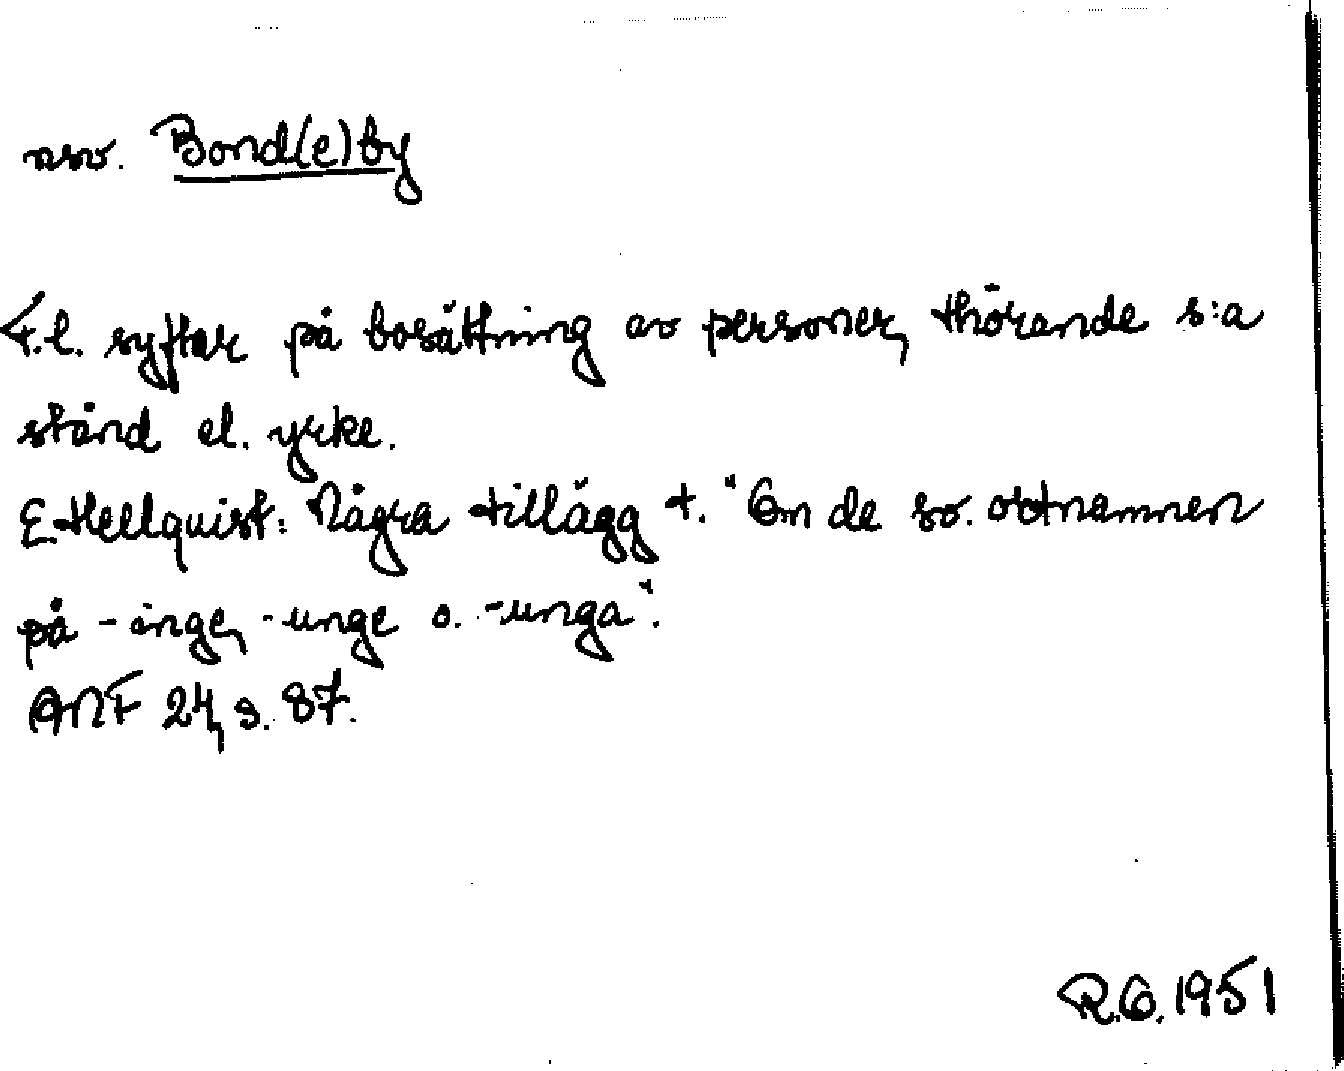 nsv. Bond(e)by
F.l. syftar på bosättning av personer, thörande s:a
stånd el. yrke.
E. Hellquist: Några tillägg t. "Om de sv. ortnamnen
på -inge, -unge o. -unga".
ANF 24, s. 87.
R.O. 1951